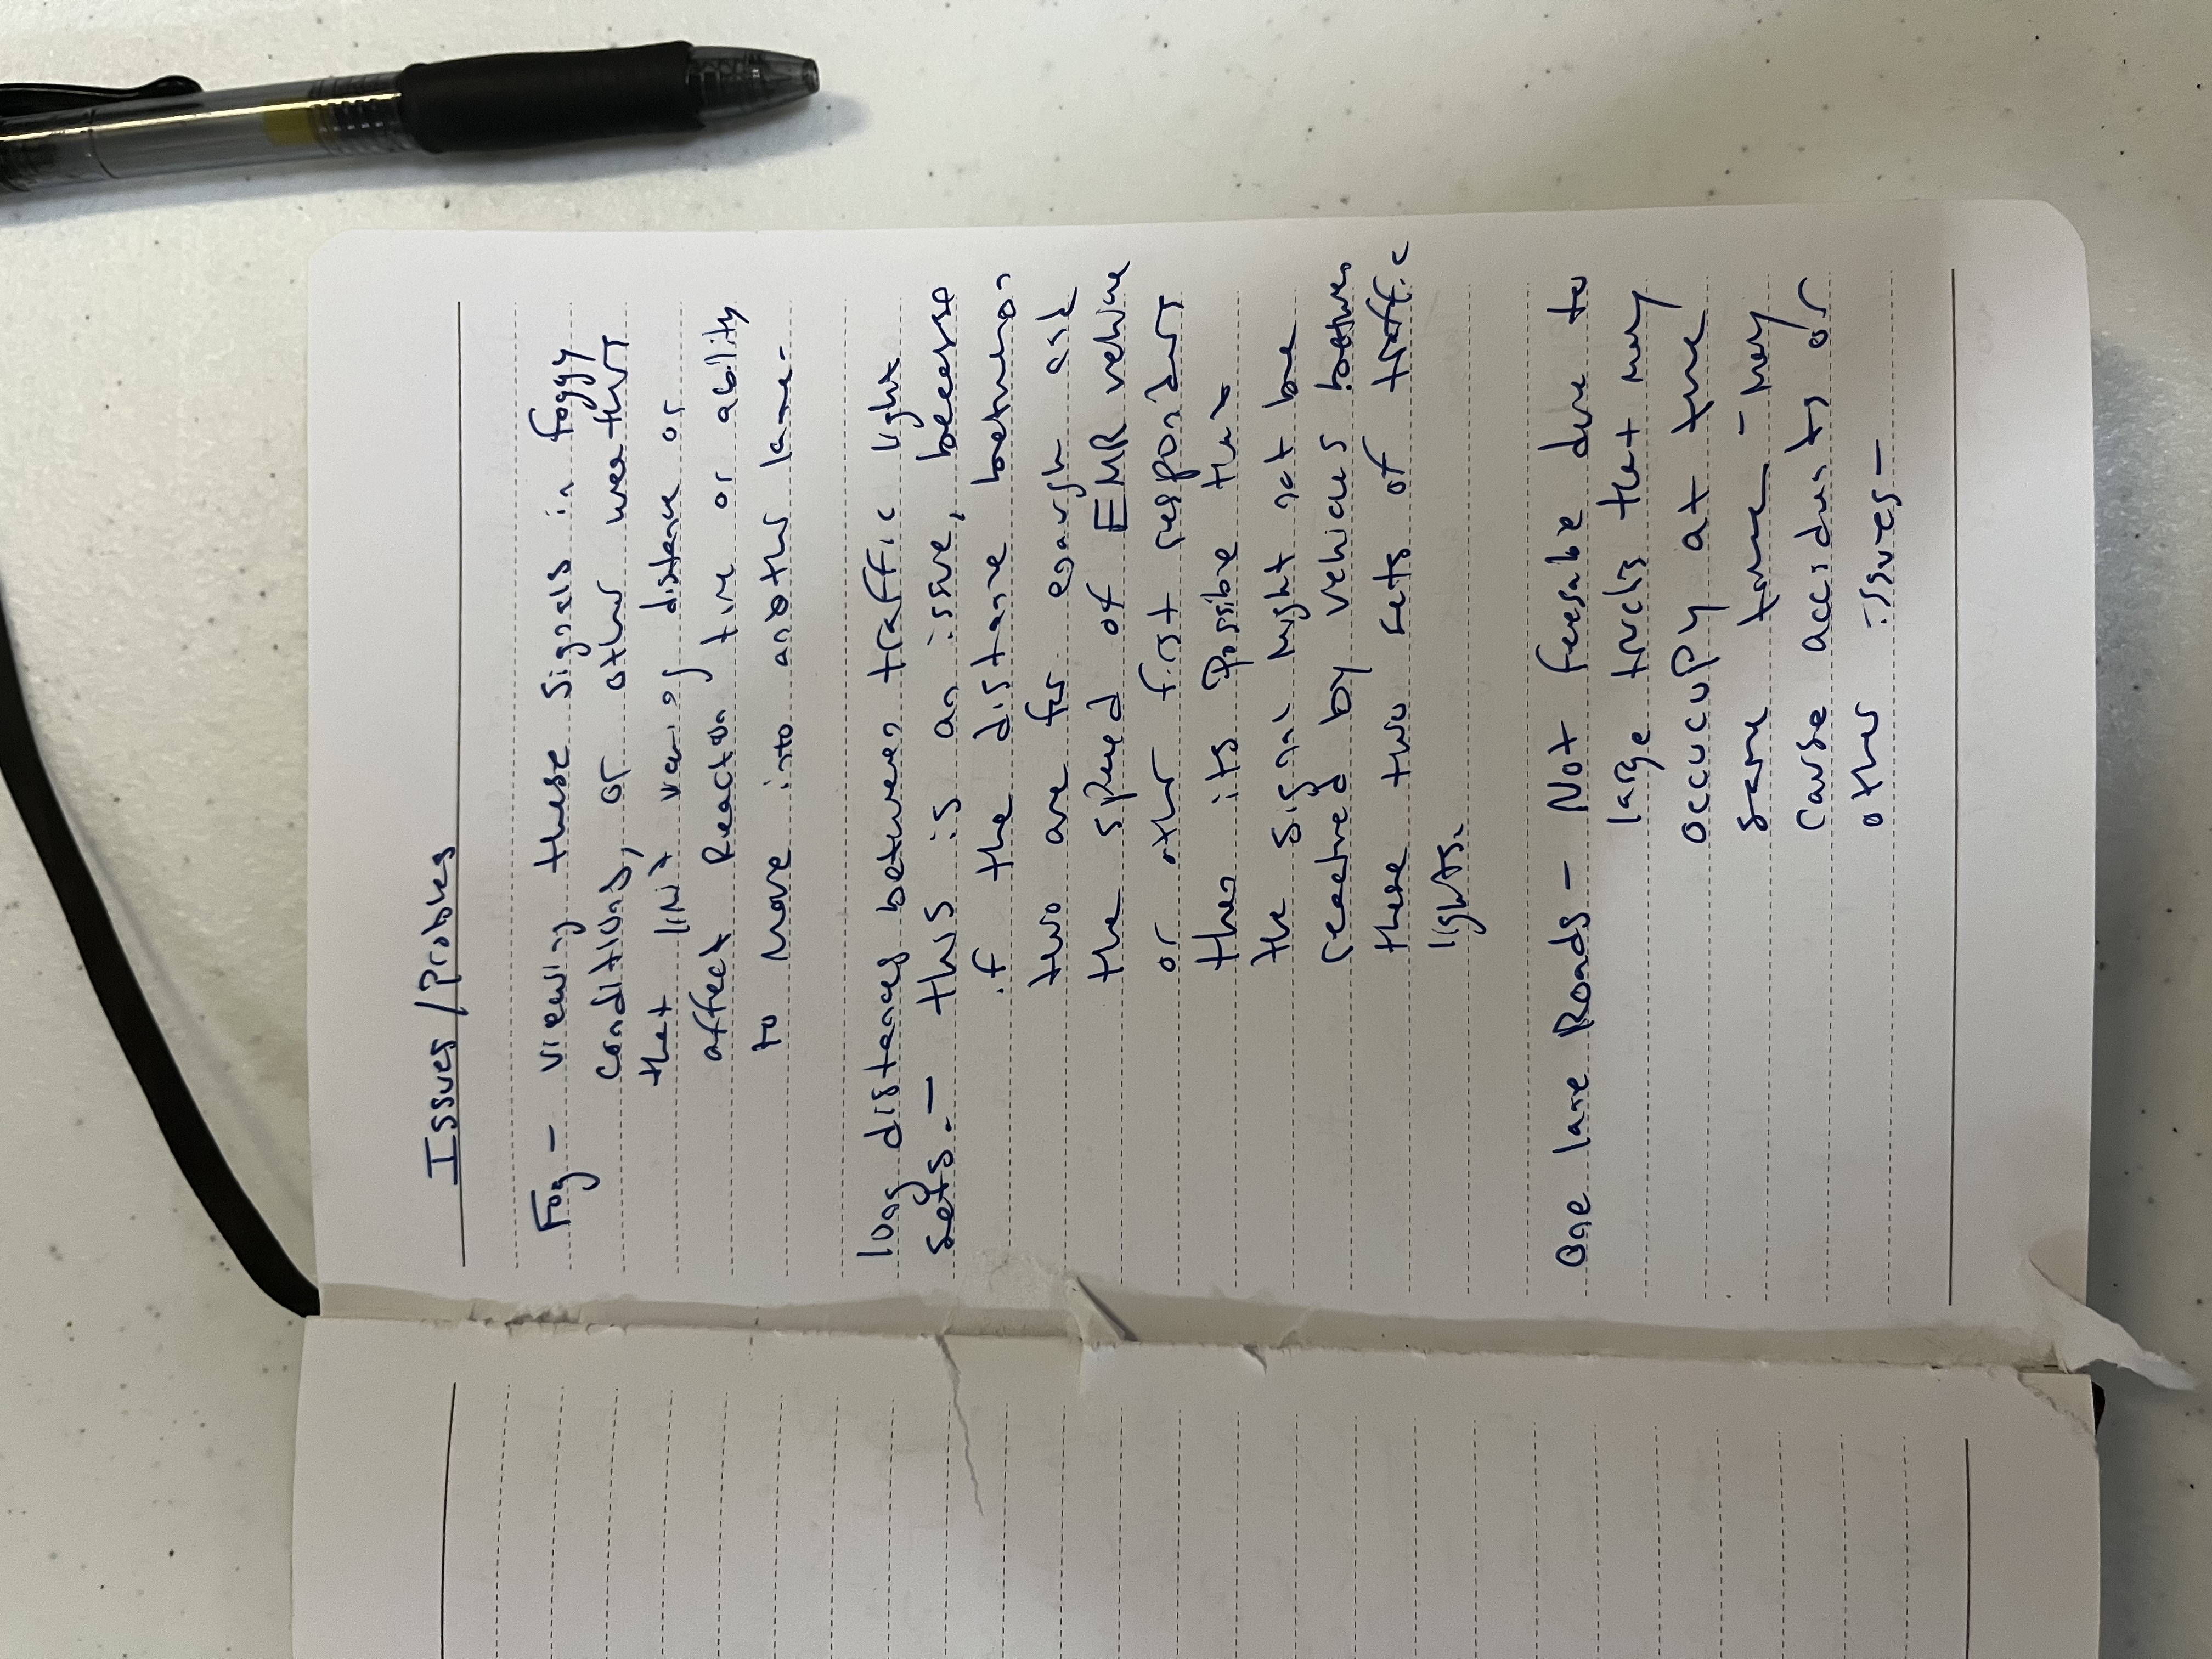 Issues/Probles
Fog - viewing these signals in foggy
conditions, or other weathers
that limit viewing distance or
affect Reaction time or ability
to move into another lane-
long distances between traffic light
sets. - this is an issue, because
if the distance between
two are far enough and
the speed of EMR vehicle
or other first responders
then its Possible that
the signal might not be
received by vehicles between
these two sets of traffic
lights.
One lane Roads - Not feesable due to
large trucks that may
occucupy at the
same time - may
cause accidents or
other issues-